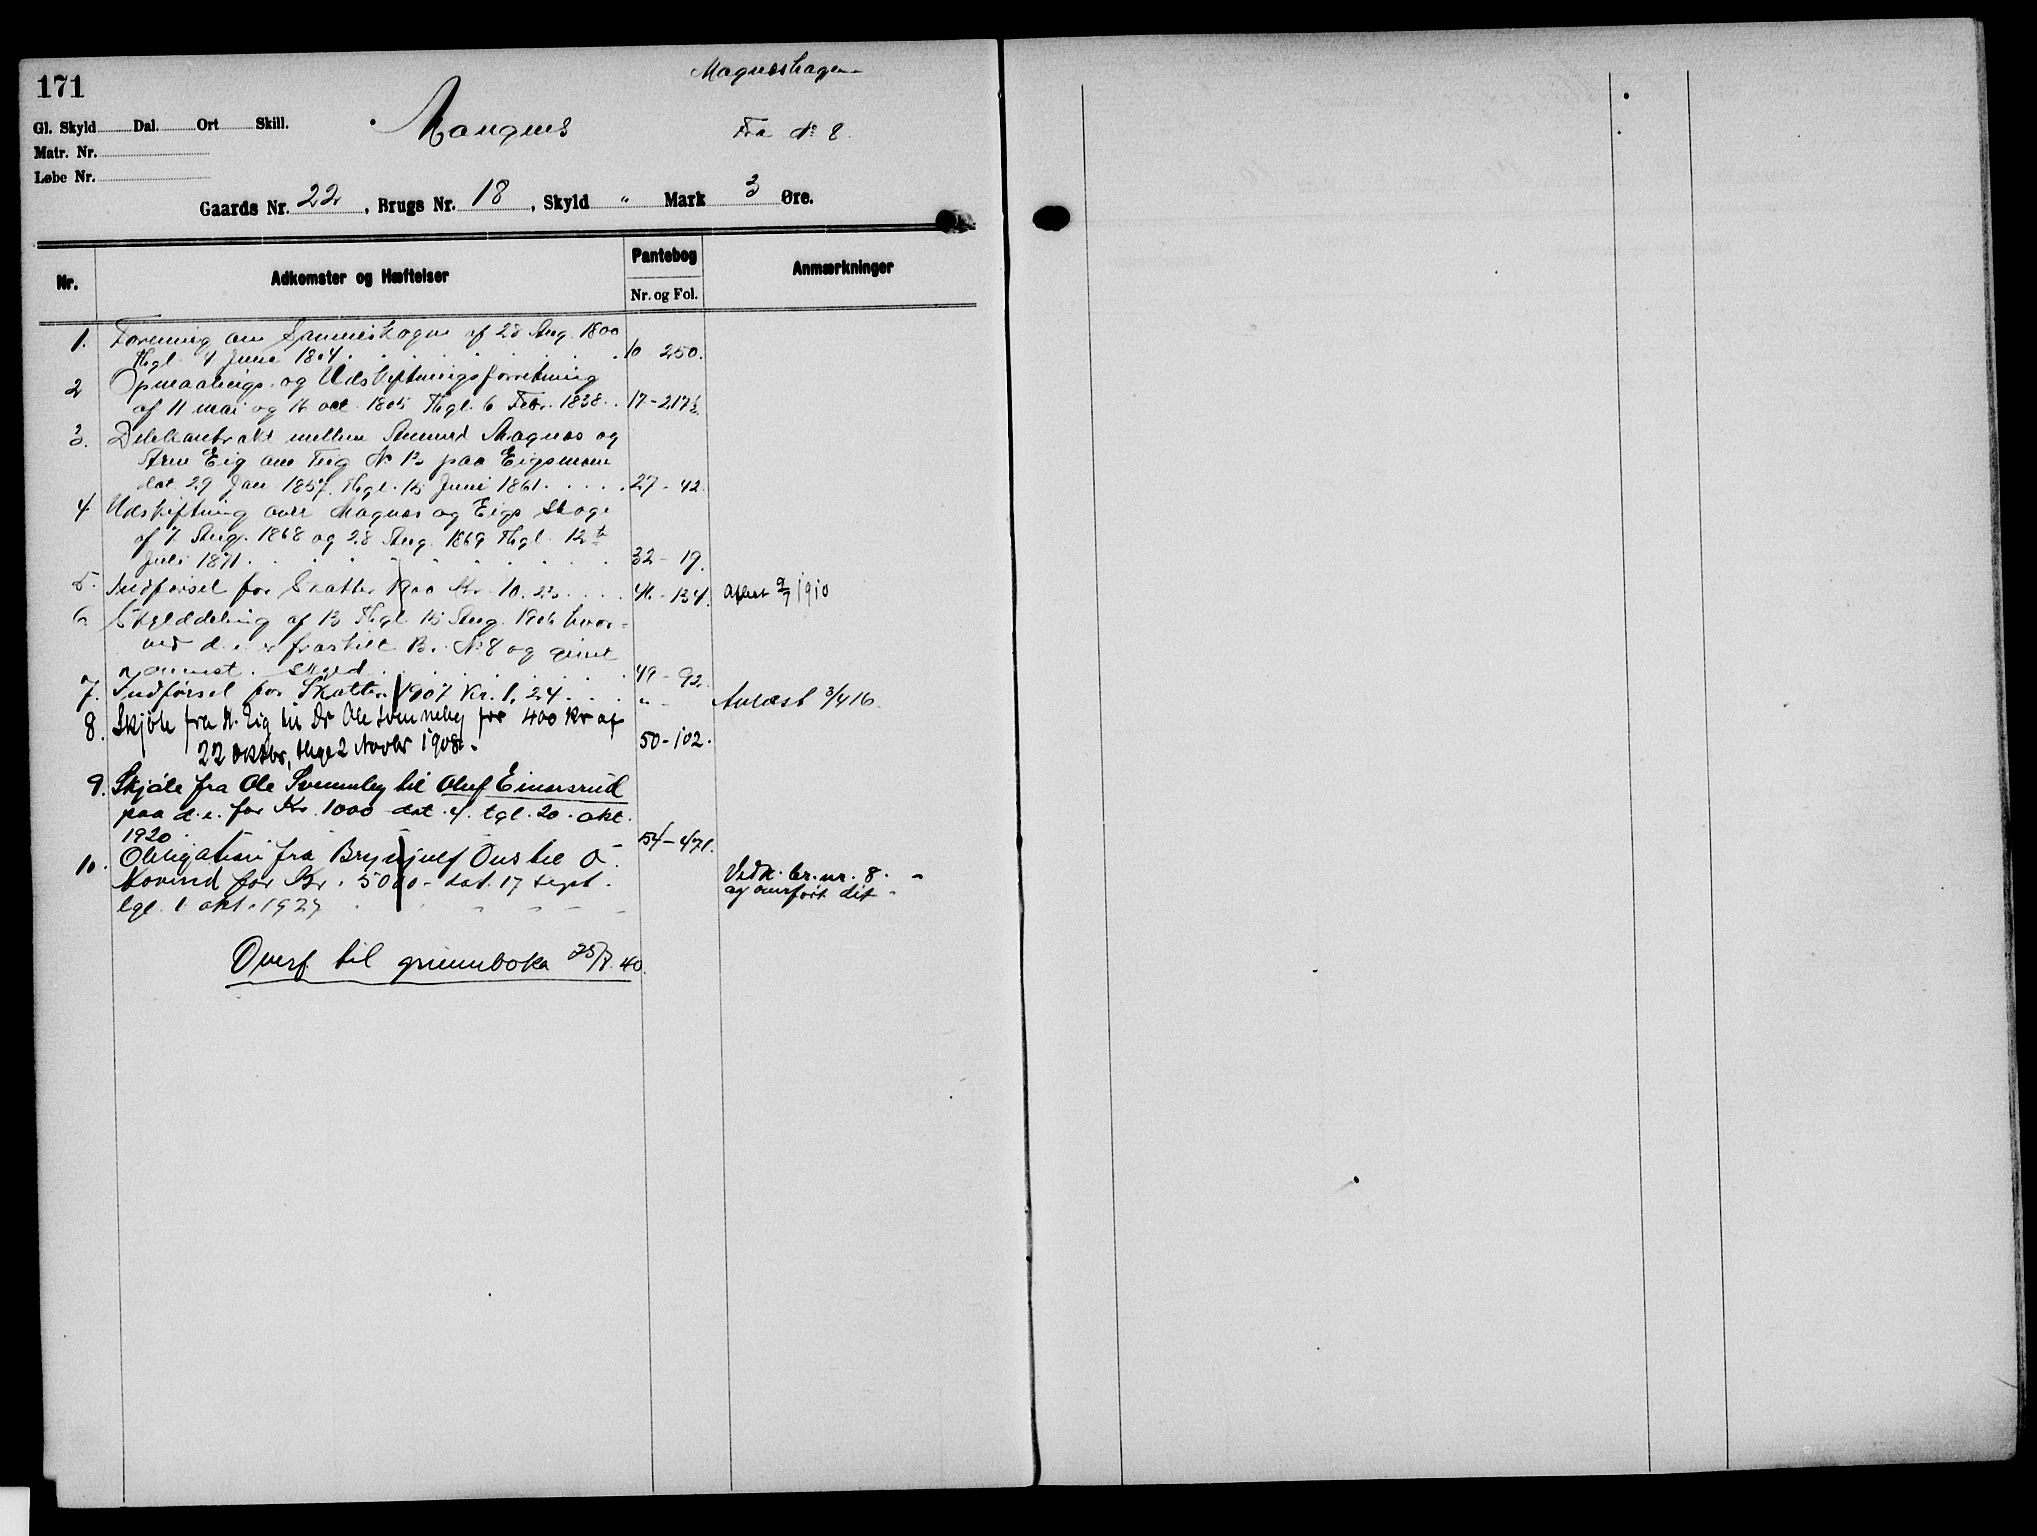 171
Magnushagen
Gl. Skyld Dal. Ort Skill.
Mangnes
Fra No 8.
Matr. Nr.
Løbe Nr.
Gaards Nr. 22, Brugs Nr. 18, Skyld " Mark 3 Øre.
Nr.
Adkomster og Hæftelser
Pantebog
Nr. og Fol.
Anmærkninger
1. Forening om af 28 Aug. 1800
Thgl. 4 Juni 1804. 10 250.
2 Opmaalings- og Udskiftningsforretning
af 11 mai og 16 oct. 1805 Thgl. 6 Febr. 1838. 17-217½
3. Delekontrakt mellem Amund Magnes og
Arne Eig om Teig No 13 paa Eigsmoen
dat 29 Jan 1857. Thgl. 15 Juni 1861. 27-42.
4 Udskiftning over Magnes og Eigs Skoge
af 7 Aug. 1868 og 28 Aug. 1869 Thgl. 12te
Juli 1871. 32-19.
5. Indførsel for Skatter 1900 Kr. 10.23 46-134. Aflæst 9/7 1910
6. Skylddeling af 13 Thgl. 15 Aug. 1906 hvor-
ved d. e. er fraskilt Br. No 8 og givet
ovennævnt. Skyld. 49-92.
7. Indførsel for Skatter 1907 Kr. 1,24. " - Avlæst 3/4 16.
8. Skjøte fra N. Eig til Dr Ole Svenneby for 400 Kr af
22 Oktbr, thgl 2 Novbr 1908. 50-102.
9. Skjøte fra Ole Svenneby til Oluf Einarsrud
paa d. e. for Kr. 1000 dat. & tgl. 20. okt.
1920. 54-471.
10. Obligation fra Brynjulf Ous til O.
Hovind for Kr. 5000 - dat. 17 sept.
tgl. 1. okt. 1927
Vedk. br. nr. 8.
og overført dit
Overf til grunnboka 25/8. 40.